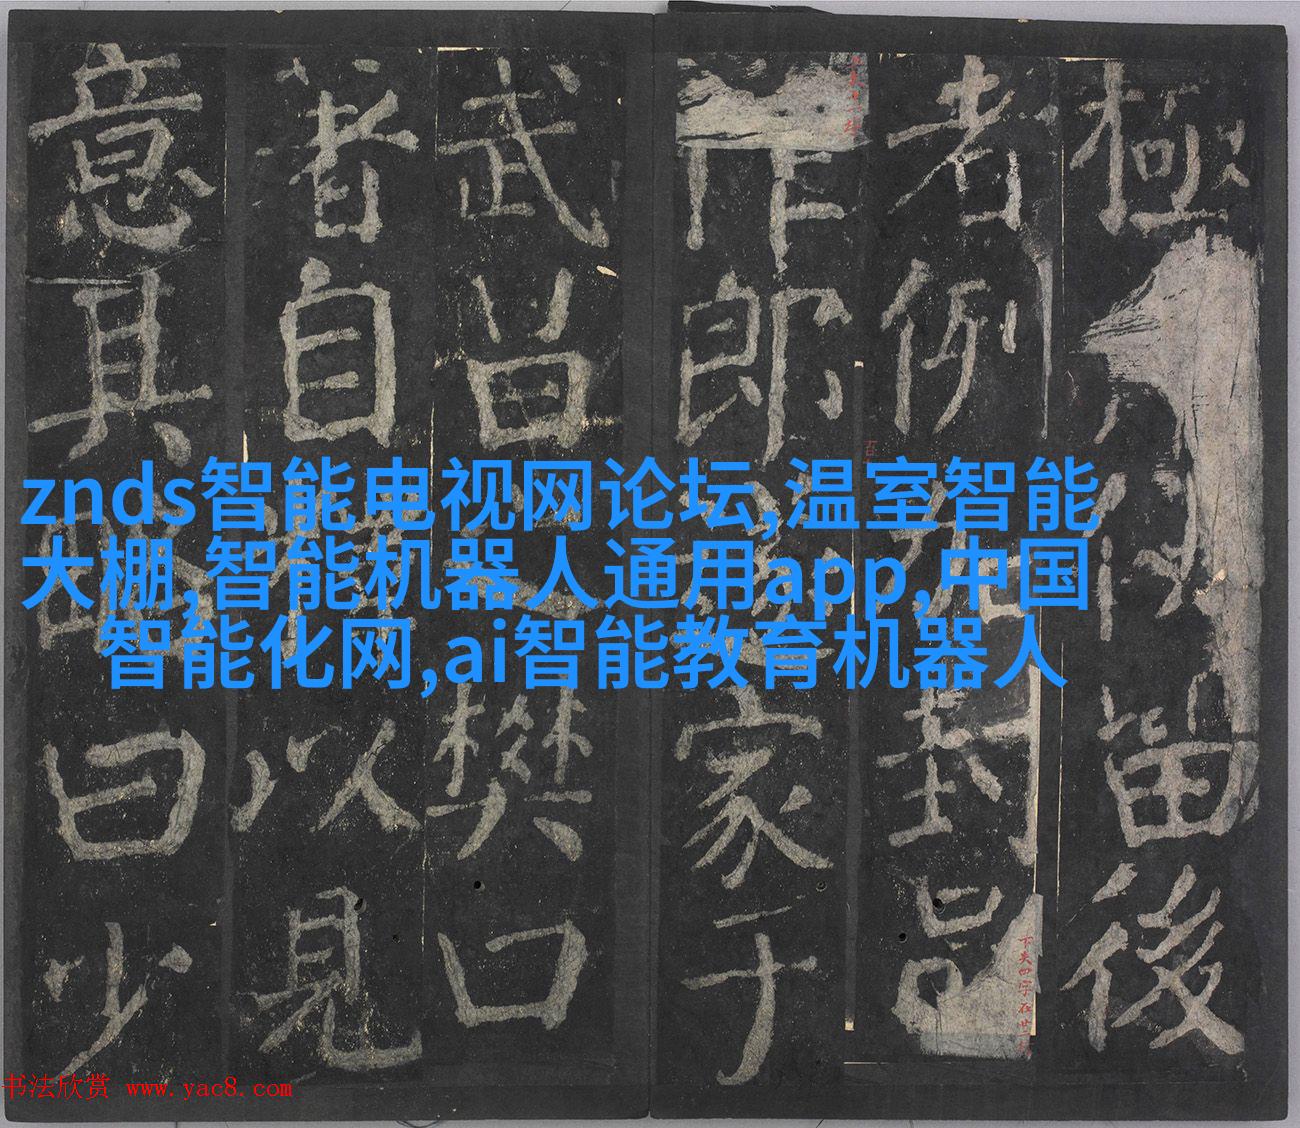 極留後
者例封
作郎家于
武昌樊口
著自以見
意其曰少
znds智能电视网论坛,温室智能
大棚,智能机器人通用app,中国
智能化网,ai智能教育机器人
下失四字在廿
书法欣赏 www.yac8.com